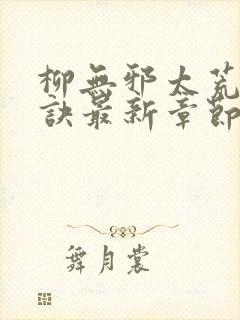 柳無邪太荒
訣最新章節
舞月裳